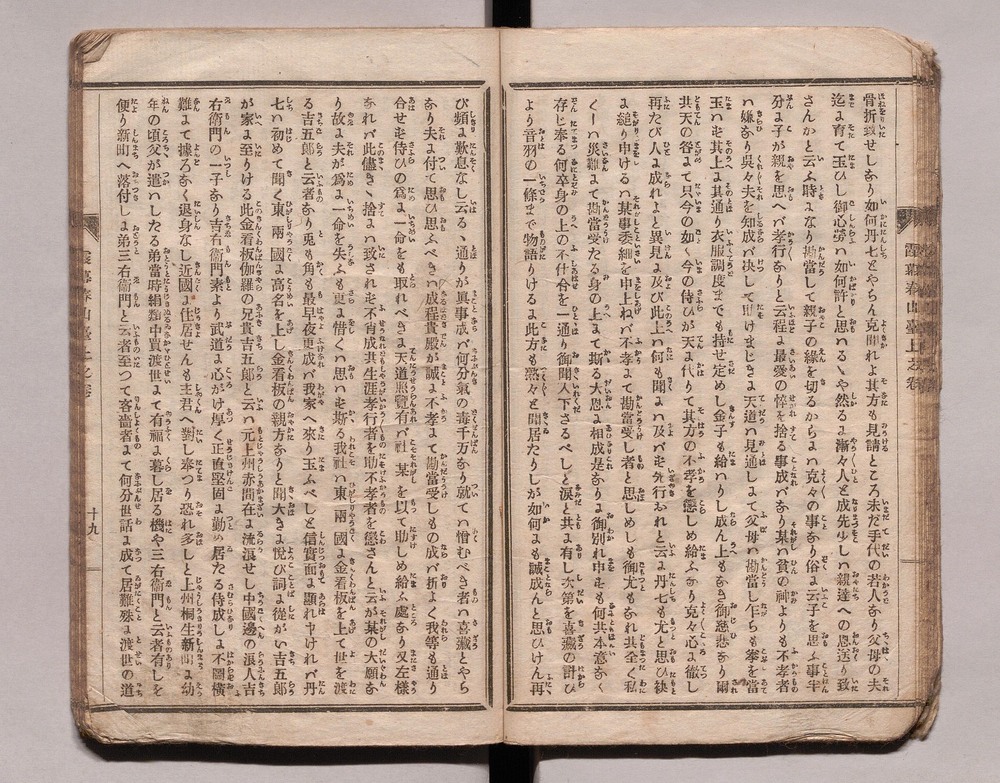 骨折致せしなり如何丹七とやらん克聞れよ其方も見請ところ未だ手代の若人なり父母の夫
迄に育て玉ひし御心労ハ如何許と思ハるゝや然るに漸々人と成先少しハ親達への恩送り致
さんかと云ふ時になり勘當して親子の縁を切るからにハ克々の事なり俗に云子を思ふ事半
分に子が親を思へバ孝行なりと云程に最愛の悴を捨る事成バなり某ハ貧の神よりも不孝者
ハ嫌なり呉々夫を知成バ决して聞けまじきに天道ハ見通しにて父母の勘當し乍らも拳を當
玉ハむ其上に其通り衣服調度までも持せ定めし金子も給ハりし成ん上もなき御慈悲なり爾
共天の咎にて只今の如く今の侍ひが天に代りて其方の不孝を懲しめ給ふなり克々心に徹し
再たび人に成れよと異見に及び此上ハ何も聞にハ及バむ先行おれと云に丹七も尤と思ひ袂
に縋り申けるハ某事委細を申上ねバ不孝にて勘當受し者と思しめしも御尤もなれ共全く私
くしハ災難にて勘當受たる身の上にて斯る大恩に相成是なりに御別れ申も何共本意なく
存じ奉る何卒身の上の不仕合を一通り御聞入下さるべしと涙と共に有し次第を喜藏の計ひ
より音羽の一條まで物語りけるに此方も熟々と聞居たりしが如何にも誠成んと思ひけん再
び頻に歎息なし云る通りが眞事成バ何分氣の毒千万なり就てハ憎むべき者ハ喜藏とやら
なり夫に付て思ひ思ふべきハ成程貴殿が誠に不孝にて勘當受しもの成バ折よく我等も通り
合せ先侍ひの為に一命をも取れべきに天道照覽有バ社某を以て助しめ給ふ處なり又左様
なれバ此儘さへ捨にハ致され先不肖成共生涯孝行者を助不孝者を懲さんと云が某の大願な
り故に夫が爲に一命を失ふも更に惜くハ思ハむ斯る我社ハ東兩國に金看板を上て世を渡
る吉五郎と云者なり兎も角も最早夜更成バ我家へ來り玉ふべしと信實面に顯れけれバ丹
七ハ初めて聞く東兩國に高名を上し金看板の親方なりと聞大きに悦び詞に從がい吉五郎
が家に至りける此金看板伽羅の兄貴吉五郎と云ハ元上州赤間在に流浪せし中國邊の浪人吉
右衛門の一子なり吉右衛門素より武道に心がけ厚く正直堅固に勤め居たる侍成しに不圖横
難にて據ろなく退身なし近國に住居せんも主君へ對し奉つり恐れ多しと上州桐生新町に幼
年の頃父が遣ハしたる弟當時絹類中買渡世にて有福に暮し居る機や三右衞門と云者有しを
便り新町へ落付しに弟三右衞門と云者至つて客嗇者にて何分世話に成て居難殊に渡世の道
霞幕春山臺上之卷
霞幕春山臺上之卷
十九